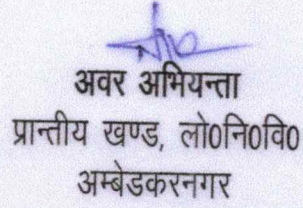 अवर अभियन्ता
प्रान्तीय खण्ड, लो0नि0वि0
अम्बेडकरनगर